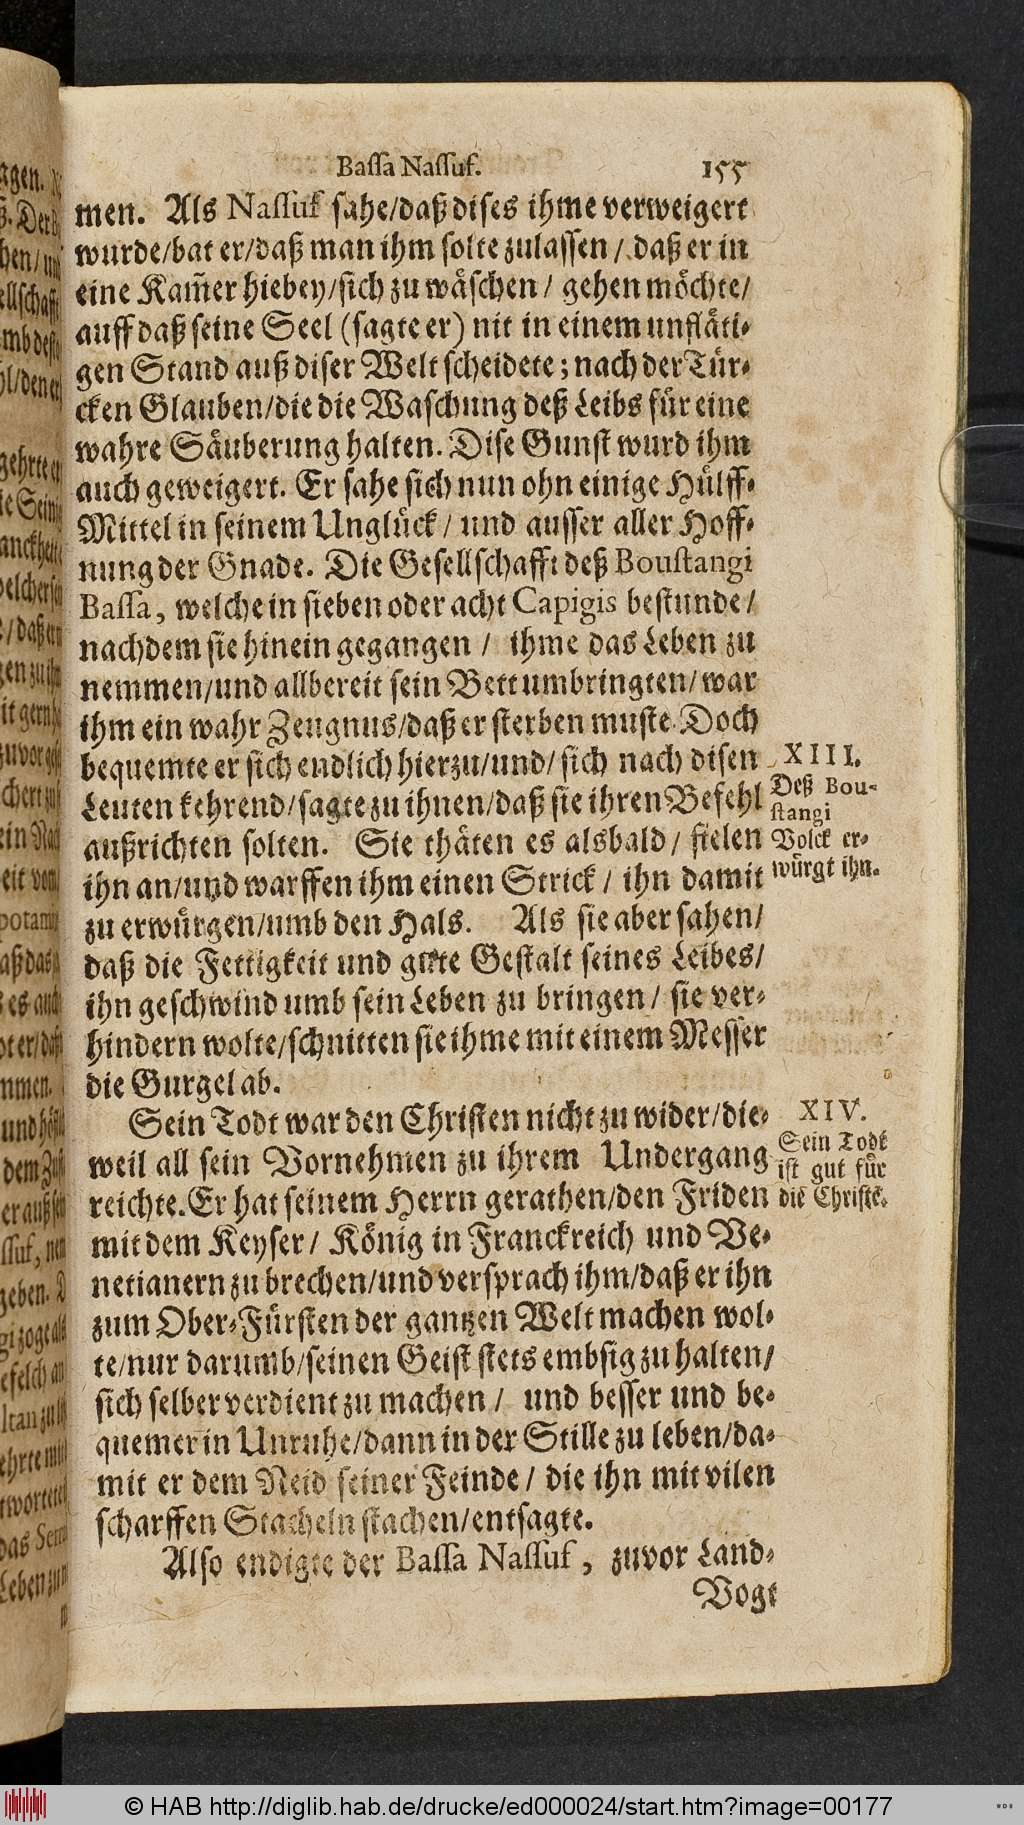 Bassa Nassuf. 155
men. Als Nassuf sahe/daß dises ihme verweigert
wurde/bat er/daß man ihm solte zulassen/ daß er in
eine Kam̃er hiebey/sich zu wäschen/ gehen möchte/
auff daß seine Seel (sagte er) nit in einem unfläti-
gen Stand auß diser Welt scheidete; nach der Tür-
cken Glauben/die die Waschung deß Leibs für eine
wahre Säuberung halten. Dise Gunst wurd ihm
auch geweigert. Er sahe sich nun ohn einige Hülff-
Mittel in seinem Unglück/ und ausser aller Hoff-
nung der Gnade. Die Gesellschafft deß Boustangi
Bassa, welche in sieben oder acht Capigis bestunde/
nachdem sie hinein gegangen / ihme das Leben zu
nemmen/und allbereit sein Bett umbringten/war
ihm ein wahr Zeugnus/daß er sterben muste. Doch
bequemte er sich endlich hierzu/und/sich nach disen
Leuten kehrend/sagte zu ihnen/daß sie ihren Befehl
außrichten solten. Sie thäten es alsbald/ fielen
ihn an/und warffen ihm einen Strick/ ihn damit
zu erwürgen/umb den Hals. Als sie aber sahen/
daß die Fettigkeit und gute Gestalt seines Leibes/
ihn geschwind umb sein Leben zu bringen/ sie ver-
hindern wolte/schnitten sie ihme mit einem Messer
die Gurgel ab.
XIII.
Deß Bou-
stangi
Volck er-
würgt ihn.
Sein Todt war den Christen nicht zu wider/die-
weil all sein Vornehmen zu ihrem Undergang
reichte. Er hat seinem Herrn gerathen/den Friden
mit dem Keyser/ König in Franckreich und Ve-
netianern zu brechen/und versprach ihm/daß er ihn
zum Ober-Fürsten der gantzen Welt machen wol-
te/nur darumb/seinen Geist stets embsig zu halten/
sich selber verdient zu machen/ und besser und be-
quemer in Unruhe/dann in der Stille zu leben/da-
mit er dem Neid seiner Feinde/ die ihn mit vilen
scharffen Stacheln stachen/entsagte.
XIV.
Sein Todt
ist gut für
die Christē.
Also endigte der Bassa Nassuf, zuvor Land-
Vogt
© HAB http://diglib.hab.de/drucke/ed000024/start.htm?image=00177